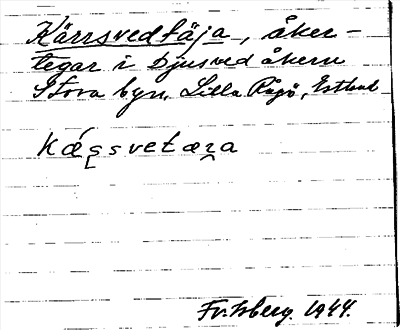 Kärrsvedtäja, åker-
tegar i Djusved åkern
Stora byn, Lilla Rågö, Estland
Kǽʂsvetæɽa
Fr. Isberg. 1944.